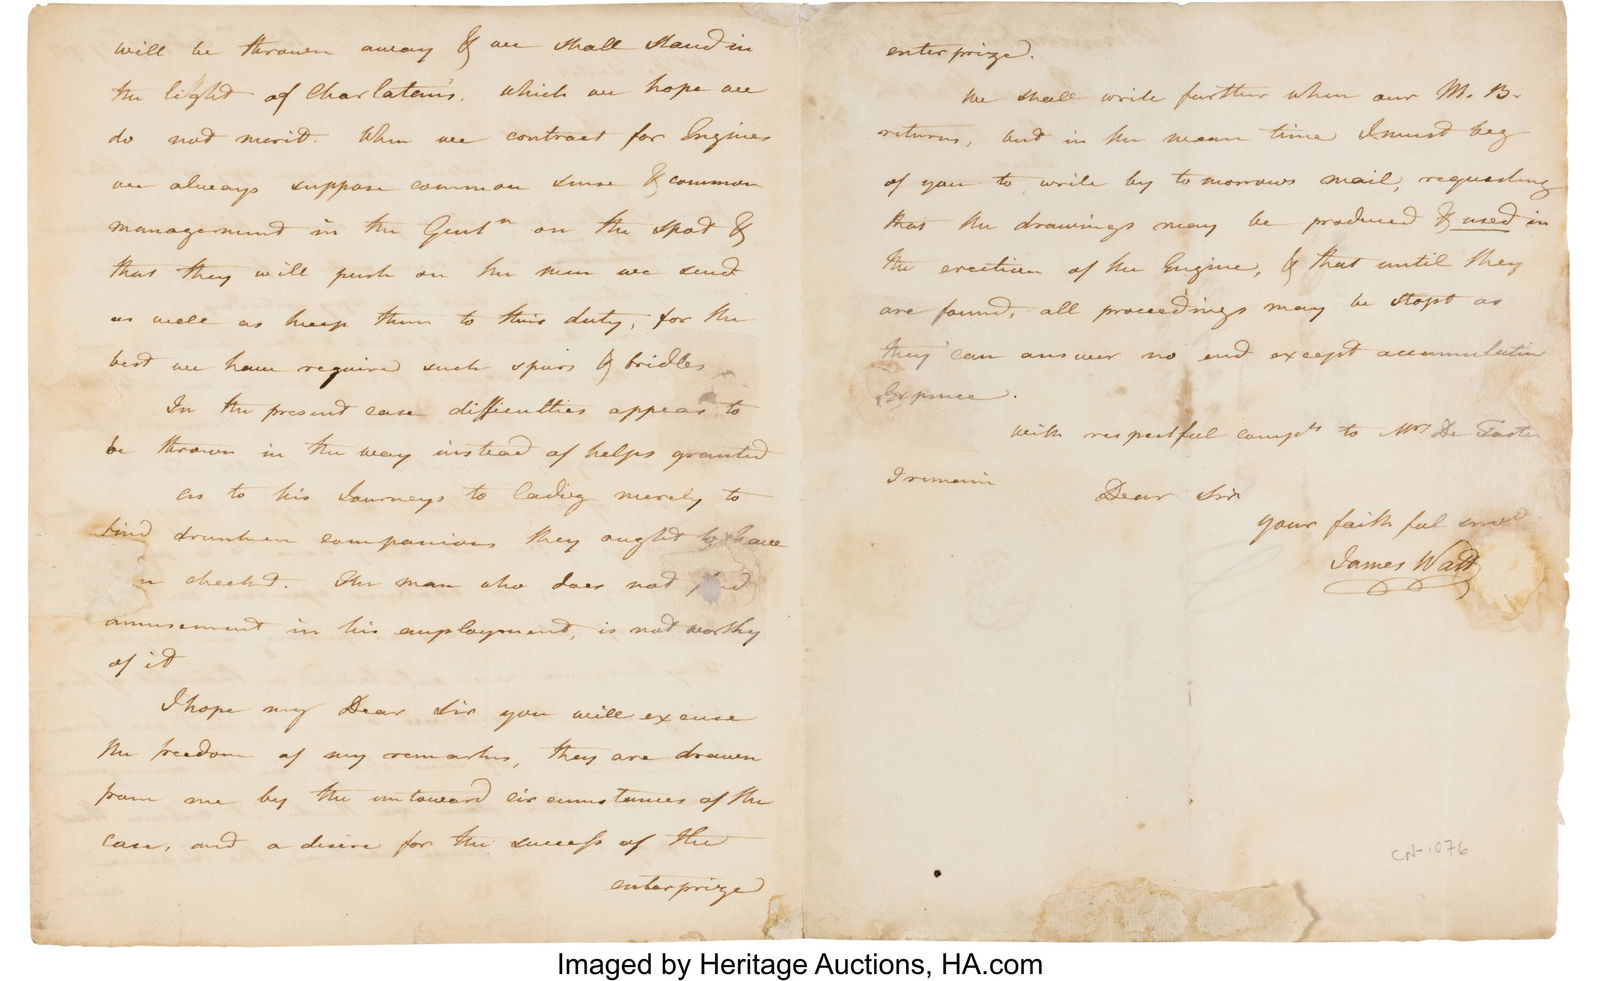 will be thrown away & we shall stand in
the light of Charlatans. which we hope we
do not merit. When we contract for Engines
we always suppose common sense & common
management in the Gentn on the spot &
that they will push on the men we send
as well as keep them to their duty, for the
best we have require such spurs & bridles
In the present case difficulties appear to
be thrown in the way instead of helps granted
as to his Journeys to Cadiz merely to
find drunken companions they ought to have
checked. The man who does not find
amusement in his employment, is not worthy
of it
I hope my Dear Sir you will excuse
the freedom of my remarks, they are drawen
from me by the untoward circumstances of the
case, and a desire for the success of the
enterprize
enterprize.
We shall write further when our M. B.
returns, and in the mean time I must beg
of you to write by tomorrows mail, requesting
that the drawings may be produced & used in
the erection of the Engine, & that until they
are found, all proceedings may be stopt as
they can answer no end except accumulating
Expence.
with respectful compts to Mrs De
I remain
Dear Sir
your faithful
James Watt
CN-1076
Imaged by Heritage Auctions, HA.com